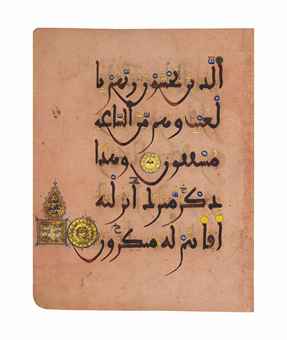 ٱلَّذِينَ يَخْشَوْنَ رَبَّهُم بِا
لْغَيْبِ وَهُم مِّنَ ٱلسَّاعَةِ
مُشْفِقُونَ وَهَٰذَا
ذِكْرٌ مُّبَارَكٌ أَنزَلْنَٰهُ
أَفَأَنتُمْ لَهُۥ مُنكِرُونَ